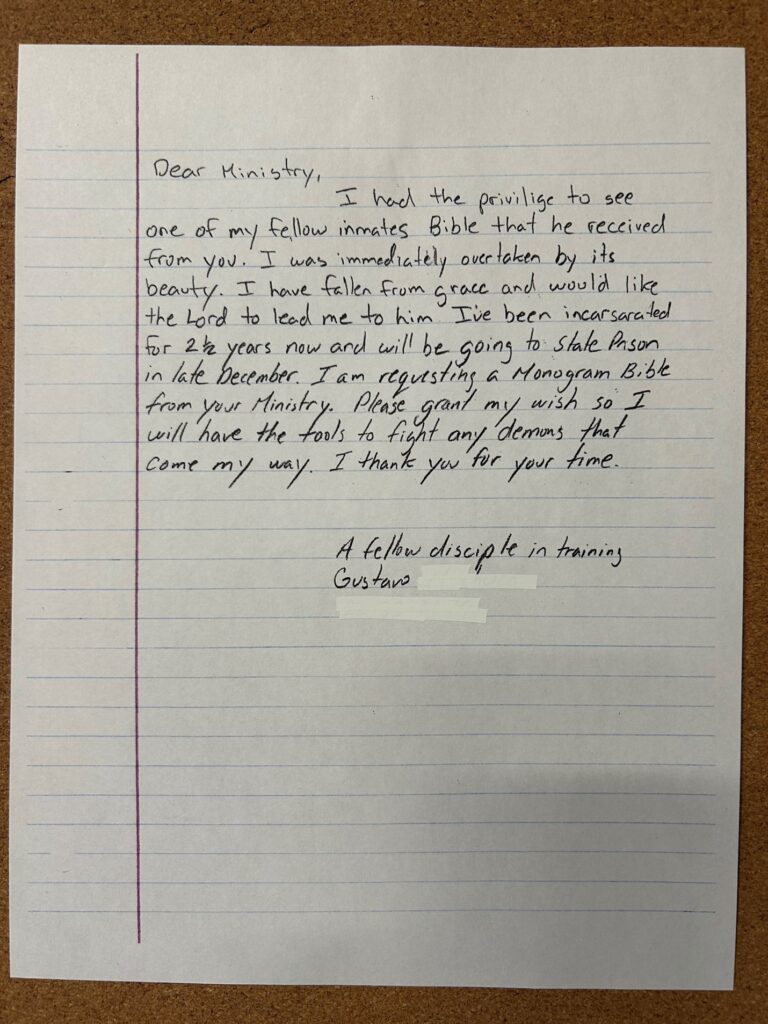 Dear Ministry,
I had the privilige to see
one of my fellow inmates Bible that he received
from you. I was immediately overtaken by its
beauty. I have fallen from grace and would like
the Lord to lead me to him I've been incarsarated
for 2½ years now and will be going to State Prison
in late December. I am requesting a Monogram Bible
from your Ministry. Please grant my wish so I
will have the tools to fight any demons that
come my way. I thank you for your time.
A fellow disciple in training
Gustavo